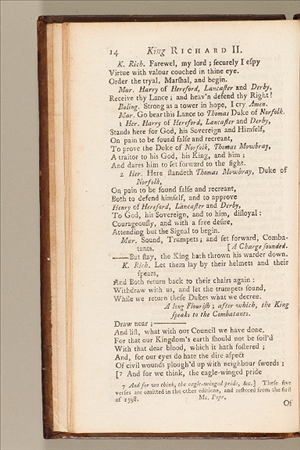 14 King RICHARD II.
K. Rich. Farewel, my lord; securely I espy
Virtue with valour couched in thine eye.
Order the tryal, Marshal, and begin.
Mar. Harry of Hereford, Lancaster and Derby,
Receive thy Lance; and heav'n defend thy Right!
Boling. Strong as a tower in hope, I cry Amen.
Mar. Go bear this Lance to Thomas Duke of Norfolk.
1 Her. Harry of Hereford, Lancaster and Derby,
Stands here for God, his Sovereign and Himself,
On pain to be found false and recreant,
To prove the Duke of Norfolk, Thomas Mowbray,
A traitor to his God, his King, and him;
And dares him to set forward to the fight.
2 Her. Here standeth Thomas Mowbray, Duke of
Norfolk,
On pain to be found false and recreant,
Both to defend himself, and to approve
Henry of Hereford, Lancaster and Derby,
To God, his Sovereign, and to him, disloyal:
Courageously, and with a free desire,
Attending but the Signal to begin.
Mar. Sound, Trumpets; and set forward, Comba-
tants. [A Charge sounded.
——But stay, the King hath thrown his warder down.
K. Rich. Let them lay by their helmets and their
spears,
And Both return back to their chairs again:
Withdraw with us, and let the trumpets sound,
While we return these Dukes what we decree.
A long Flourish; after which, the King
speaks to the Combatants.
Draw near;———
And list, what with our Council we have done.
For that our Kingdom's earth should not be soil'd
With that dear blood, which it hath foster'd;
And, for our eyes do hate the dire aspect
Of civil wounds plough'd up with neighbour swords;
[7 And for we think, the eagle-winged pride
7 And for we think, the eagle-winged pride, &c.] These five
verses are omitted in the other editions, and restored from the first
of 1598. Mr. Pope.
Of